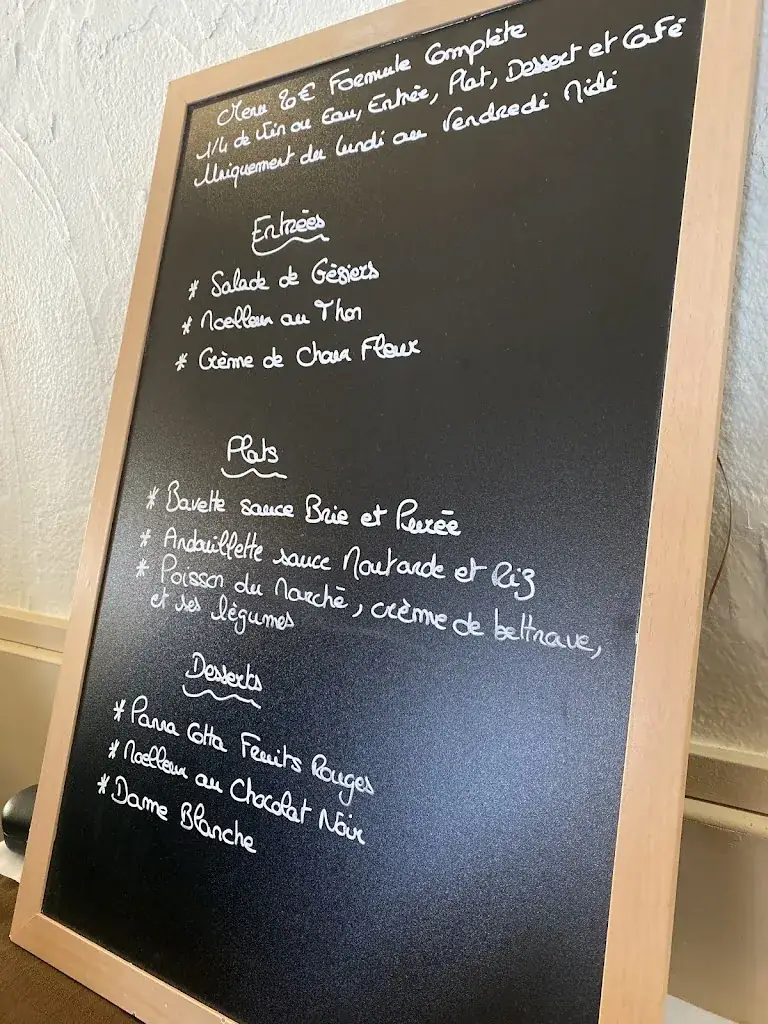 Menu 20€ Formule Complète
1/4 de Vin ou Eau, Entrée, Plat, Dessert et Café
Uniquement du lundi au Vendredi Midi
Entrées
* Salade de Gésiers
* Moelleux au Thon
* Crème de Choux Fleur
Plats
* Bavette sauce Brie et Purée
* Andouillette sauce Moutarde et Riz
* Poisson du Marché, crème de bettrave,
et ses légumes
Desserts
* Panna Cotta Fruits Rouges
* Moelleux au Chocolat Noir
* Dame Blanche